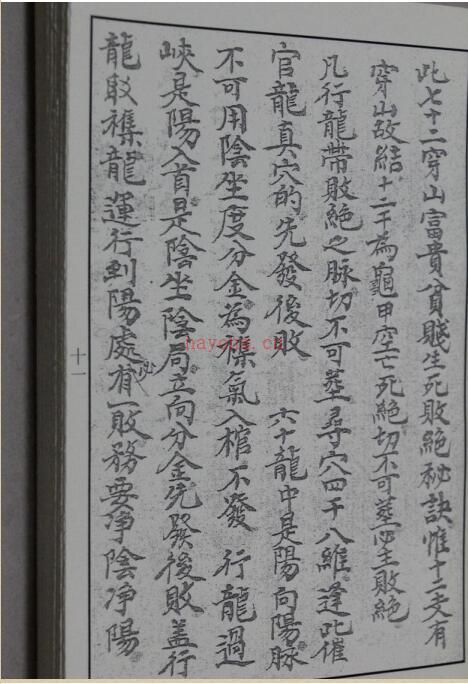 此七十二穿山富貴貧賤生死敗絕秘訣惟十二支有
穿山故結十二干為龜甲空亡死絕切不可塟必主敗絕
凡行龍帶敗絕之脉切不可塟尋穴四千八維逢此催
官龍真穴的先發後敗 六十龍中是陽向陽脉
不可用陰坐度分金為襍氣入棺不發 行龍過
峽是陽入首是陰坐陰局立向分金先發後敗盖行
龍馭襍龍運行到陽處必有一敗務要净陰净陽
十一
hayong.cn